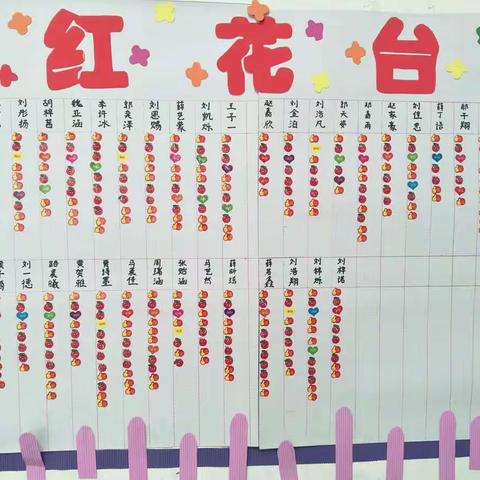 红花台
刘彤扬
胡梓茜
魏亚涵
李许冰
郭奕泽
刘恩赐
薛艺豪
刘凯烁
王子一
赵嘉欣
刘金泊
刘浩凡
郭天姿
郝嘉雨
赵家豪
刘佳思
薛丁语
郭子翔
刘一德
路晨曦
黄贺雅
贾诗墨
马晨佳
周瑞涵
张皓涵
马艺然
薛昕瑶
薛茗鑫
刘浩翔
刘梓烁
刘梓诺